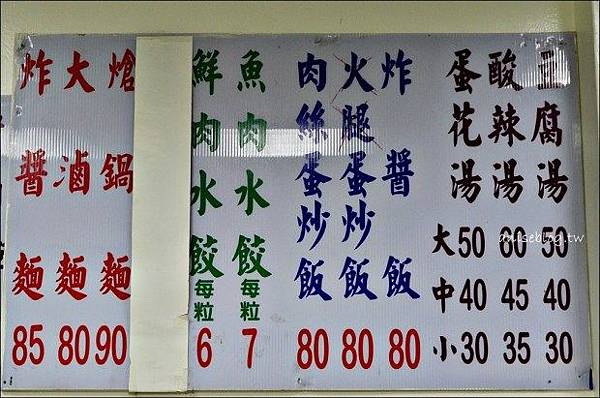 炸醬麵 85
大滷麵 80
熗鍋麵 90
鮮肉水餃 每粒 6
魚肉水餃 每粒 7
肉絲蛋炒飯 80
火腿蛋炒飯 80
炸醬飯 80
蛋花湯 大50 中40 小30
酸辣湯 60 45 35
豆腐湯 50 40 30
aniseblog.tw